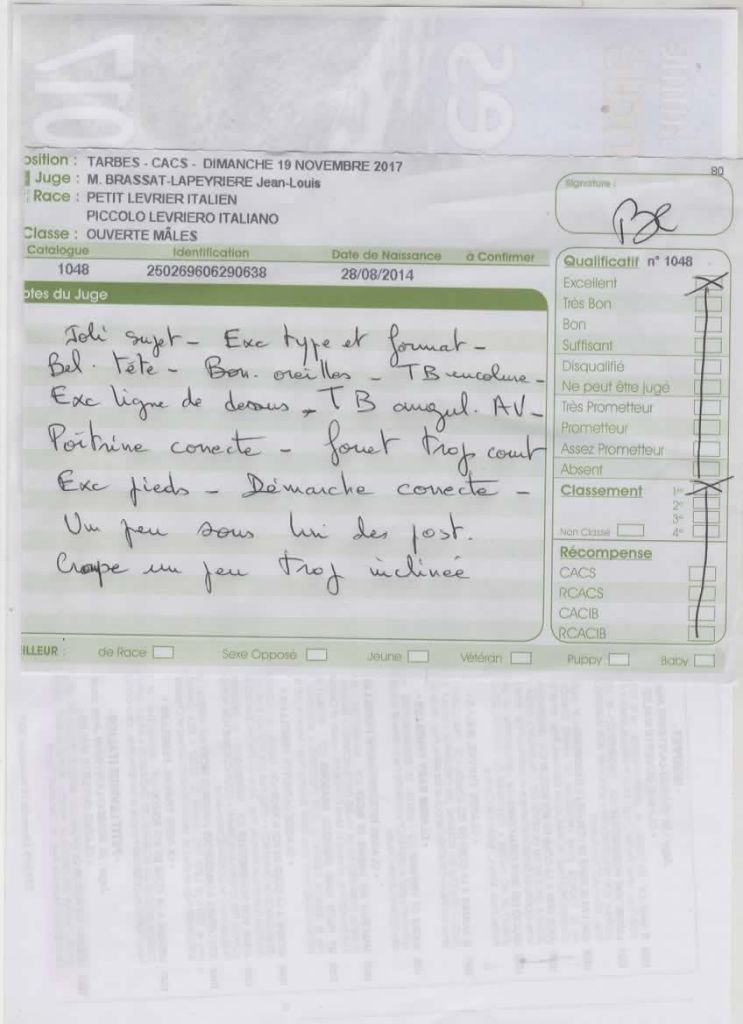 osition : TARBES - CACS - DIMANCHE 19 NOVEMBRE 2017
80
Juge : M. BRASSAT-LAPEYRIERE Jean-Louis
Signature :
Race : PETIT LEVRIER ITALIEN
PICCOLO LEVRIERO ITALIANO
Classe : OUVERTE MÂLES
Catalogue Identification Date de Naissance à Confirmer
1048 250269606290638 28/08/2014
otes du Juge
Joli sujet - Exc type et format -
Bel. tête - Bon. oreilles - TB encolure -
Exc ligne de dessus - TB angul. AV -
Poitrine correcte - fouet trop court
Exc pieds - Démarche correcte -
Un peu sous lui des post.
Croupe un peu trop inclinée
Qualificatif n° 1048
Excellent
Très Bon
Bon
Suffisant
Disqualifié
Ne peut être jugé
Très Prometteur
Prometteur
Assez Prometteur
Absent
Classement 1er
2e
3e
Non Classé 4e
Récompense
CACS
RCACS
CACIB
RCACIB
ILLEUR : de Race Sexe Opposé Jeune Vétéran Puppy Baby